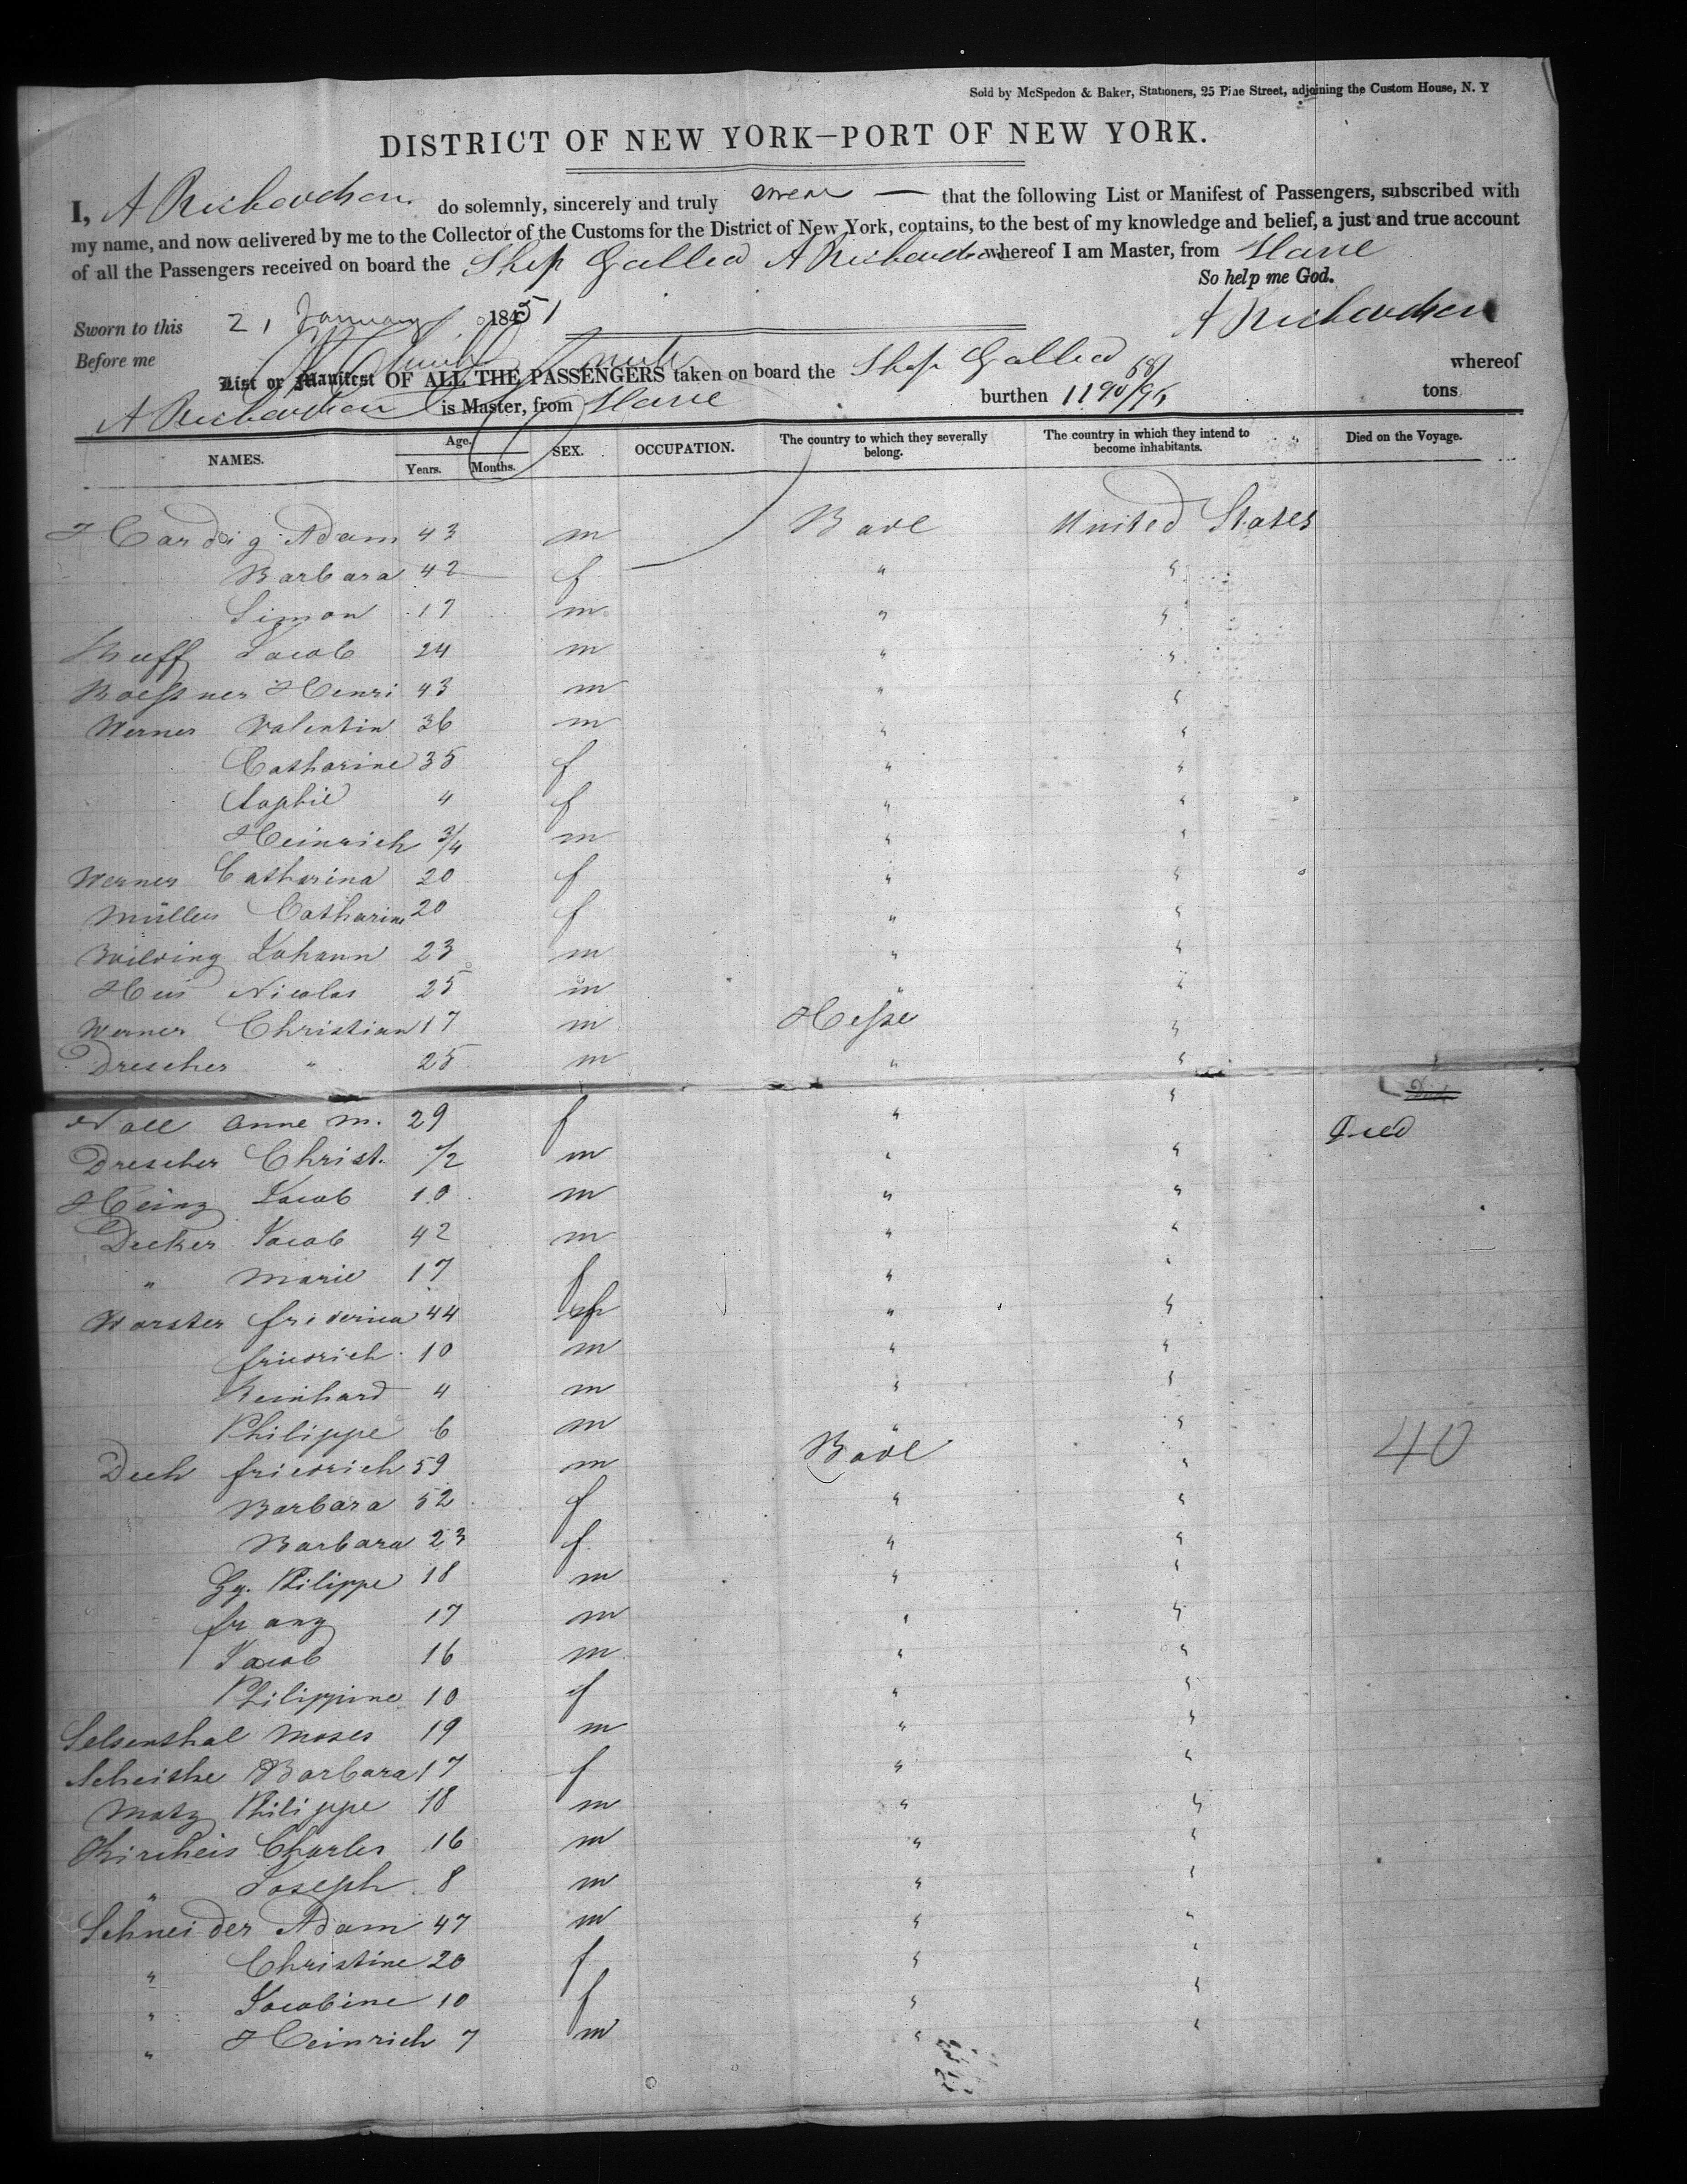 Sold by McSpedon & Baker, Stationers, 25 Pine Street, adjoining the Custom House, N. Y
DISTRICT OF NEW YORK—PORT OF NEW YORK.
I, A Richardson do solemnly, sincerely and truly swear — that the following List or Manifest of Passengers, subscribed with
my name, and now delivered by me to the Collector of the Customs for the District of New York, contains, to the best of my knowledge and belief, a just and true account
of all the Passengers received on board the Ship Gallia A Richardson whereof I am Master, from Havre
So help me God.
Sworn to this 21 January 1851
A Richardson
Before me
List or Manifest OF ALL THE PASSENGERS taken on board the Ship Gallia whereof
A Richardson is Master, from Havre burthen 1190 /95 tons
NAMES. Age. Years. Months. SEX. OCCUPATION. The country to which they severally belong. The country in which they intend to become inhabitants. Died on the Voyage.
Hardig Adam 43 m Bade United States
Barbara 42 f " "
Simon 17 m " "
Jacob 24 m " "
Boessner Henri 43 m " "
Werner Valentin 36 m " "
Catharine 35 f " "
Sophie 4 f " "
Heinrich 3/4 m " "
Werner Catharina 20 f " "
Müller Catharine 20 f " "
Wilding Johann 23 m " "
Heis Nicolas 25 m " "
Werner Christian 17 m Hesse "
Drescher " 25 m " "
Noll Anne M. 29 f " "
Drescher Christ. 1/2 m " " Died
Heinz Jacob 10 m " "
Decker Jacob 42 m " "
" Marie 17 f " "
Worster Friderica 44 f " "
Friedrich 10 m " "
Reinhard 4 m " "
Philippe 6 m " "
Dech Friedrich 59 m Bade " 40
Barbara 52 f " "
Barbara 23 f " "
Gg. Philippe 18 m " "
Franz 17 m " "
Jacob 16 m " "
Philippine 10 f " "
Selsenthal Moses 19 m " "
Scheithe Barbara 17 f " "
Matz Philippe 18 m " "
Kircheis Charles 16 m " "
" Joseph 8 m " "
Schneider Adam 47 m " "
" Christine 20 f " "
" Jacobine 10 f " "
" Heinrich 7 m " "